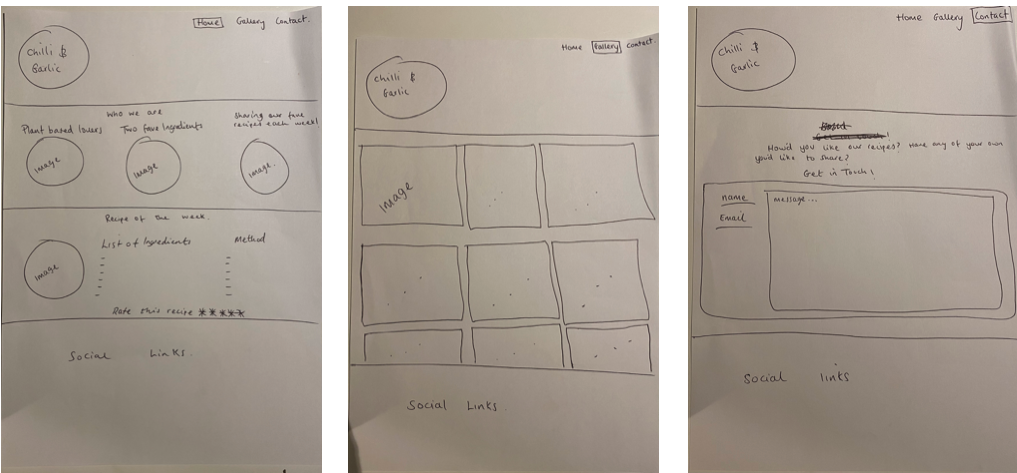 Home Gallery Contact.
Chilli &
Garlic
Who we are
Plant based lovers Two fave Ingredients
Sharing our fave
recipes each week!
Image
Image
Image.
Recipe of the week.
List of Ingredients Method
Image
Rate this recipe *****
Social Links.
Home Gallery Contact.
Chilli &
Garlic
Image
Social Links.
Home Gallery Contact
Chilli &
Garlic
How'd you like our recipes? Have any of your own
you'd like to share?
Get in Touch!
name
Email
message...
Social links